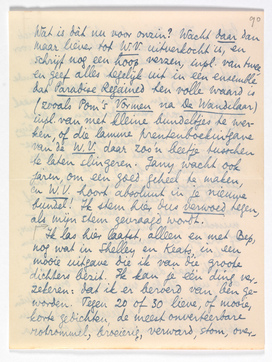 90
Wat is dàt nu voor onzin? Wacht daar dan
maar liever tot W.V. uitverkocht is, en
schrijf nog een hoop verzen, inpl. van twee,
en geef alles tegelijk uit in een ensemble
dat Paradise Regained ten volle waard is
(zooals Pom's Vormen na De Wandelaar)
inpl. van met kleine bundeltjes te wer-
ken, of die lamme prentenboekuitgave
van de W.V. daar zoo'n beetje tusschen
te laten slingeren. Jany wacht ook
jaren, om een goed geheel te maken,
en W.V. hoort absoluut in je nieuwe
bundel! Ik stem hier dus verwoed tegen,
als mijn stem gevraagd wordt.
Ik las hier laatst, alleen en met Bep,
nog wat in Shelley en Keats, in een
mooie uitgave die ik van die groote
dichters bezit. Ik kan je één ding ver-
zekeren: dat ik er beroerd van ben ge-
worden. Tegen 20 of 30 lieve, of mooie,
korte gedichten, de meest onverteerbare
rotrommel, broeierig, verward, stom, over-